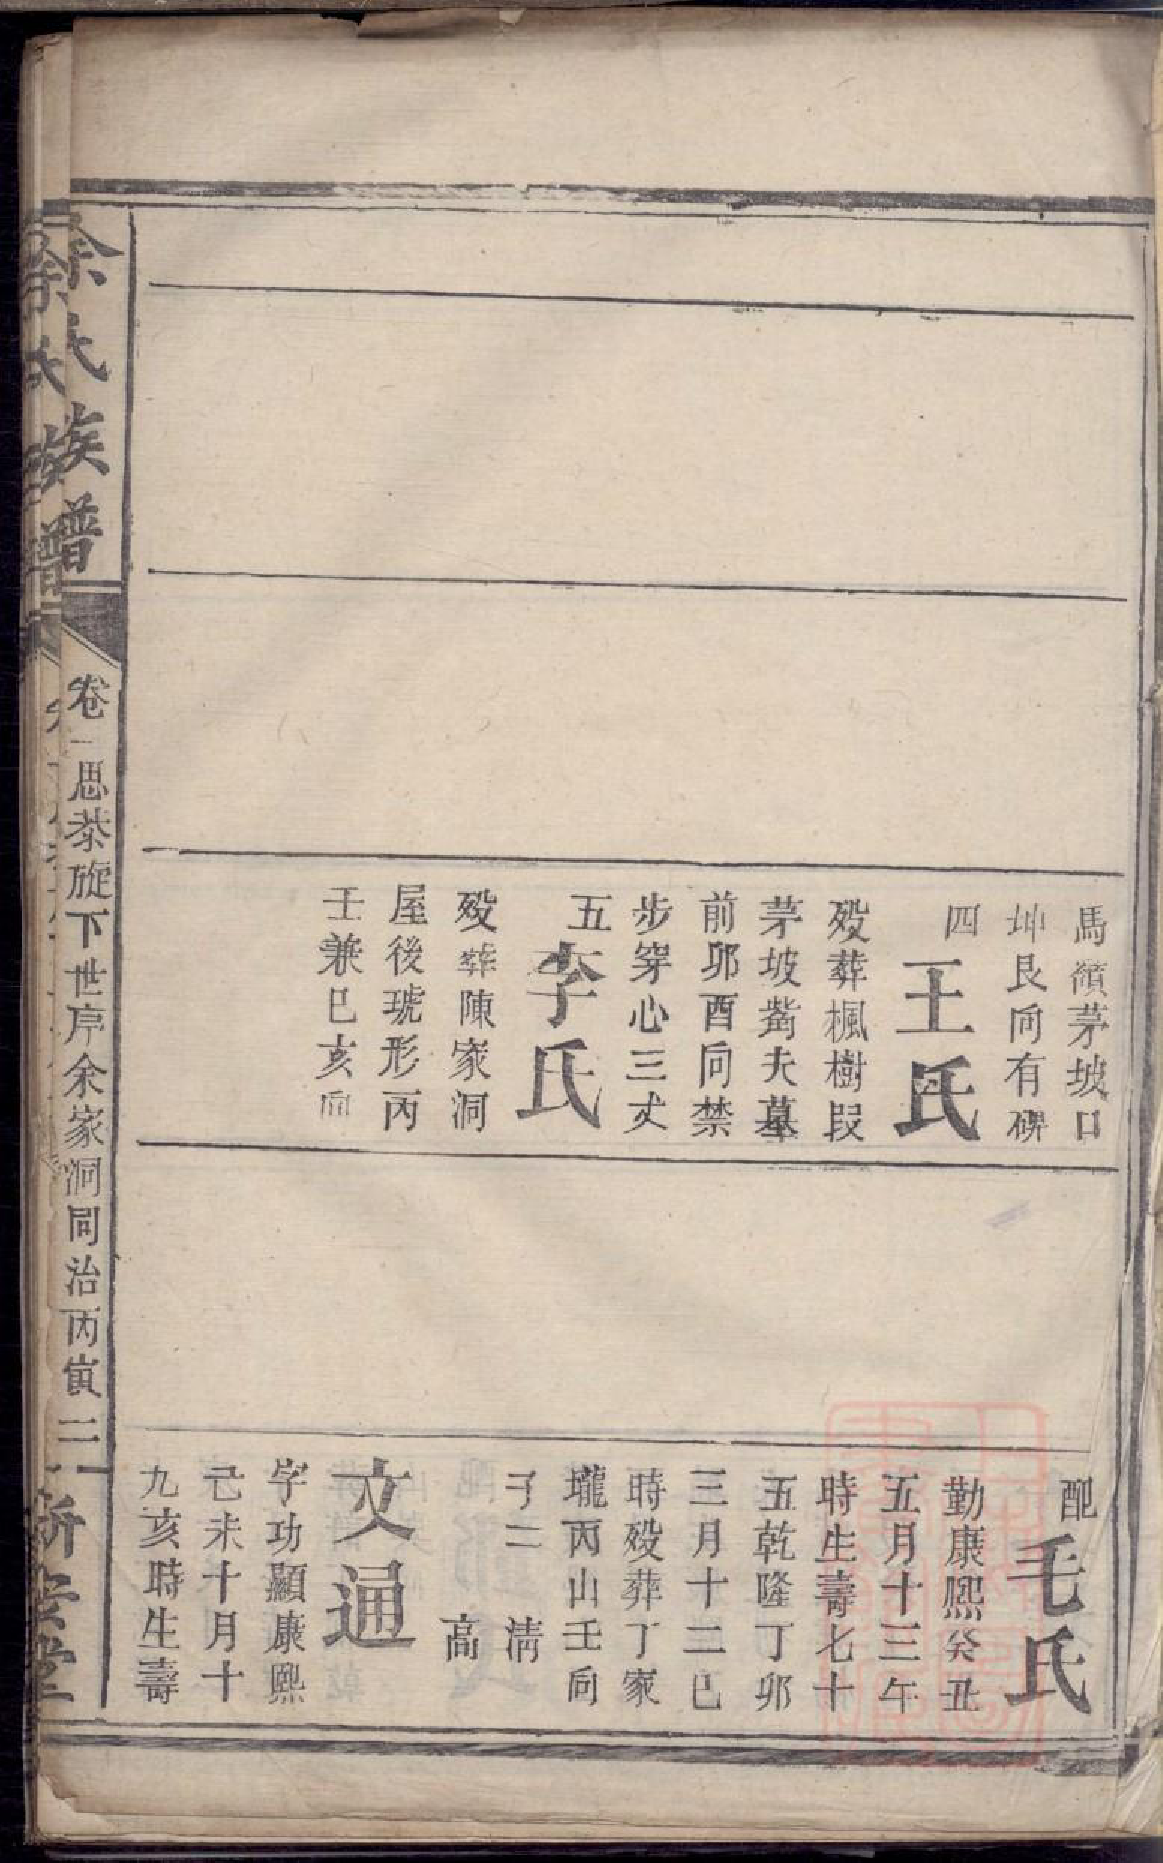 馬嶺茅坡口
坤艮向有碑
四王氏
殁葬楓樹段
茅坡嵩夫墓
前卯酉向禁
步穿心三丈
五李氏
殁葬陳家洞
屋後琥形丙
壬兼巳亥向
配毛氏
勤康熙癸丑
五月十三午
時生壽七十
五乾隆丁卯
三月十二巳
時殁葬丁家
壠丙山壬向
子二 清
高
文通
字功顯康熙
己未十月十
九亥時生壽
余氏族譜
卷一思恭旋下世序余家洞同治丙寅 三
新安堂